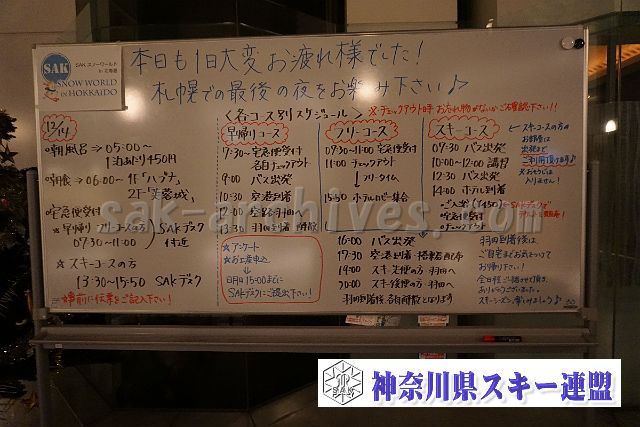 SAK スノーワールド
in 北海道
SAK
SNOW WORLD
in HOKKAIDO
本日も1日大変お疲れ様でした！
札幌での最後の夜をお楽しみ下さい♪
12/14
〈各コース別スケジュール〉
※チェックアウト時 お忘れ物がないかご確認下さい!!
◎朝風呂 ⇒ 05:00〜
1泊あたり450円
◎朝食 ⇒ 06:00〜 1F「ハプナ」
2F「芙蓉城」
◎宅急便受付
☆早帰り フリーコースの方
07:30〜11:00
SAKデスク
付近
☆スキーコースの方
13:30〜15:50 SAKデスク
☆事前に伝票をご記入下さい！
早帰りコース
7:30〜宅急便受付
各自チェックアウト
9:00 バス出発
10:30 空港到着
12:00 空路羽田へ
13:30 羽田到着 解散
☆アンケート
☆お土産申込
↓
明日15:00までに
SAKデスクにご提出下さい！
フリーコース
07:30〜11:00 宅急便受付
11:00 チェックアウト
↓フリータイム
15:50 ホテルロビー集合
スキーコース
07:30 バス出発
10:00〜12:00 講習
12:30 バス出発
14:00 ホテル到着
・宅急便受付
・チェックアウト
16:00 バス出発
17:30 空港到着・搭乗者配布
19:00 羽田へ
20:00 羽田へ
羽田到着後、各自解散となります
スキーコースの方の
お部屋は
出発まで
ご利用頂けます♪
入りません！
羽田到着後は、
ご自宅までお気をつけて
お帰り下さい！
ありがとうございました。
sak-archives.com
神奈川県スキー連盟